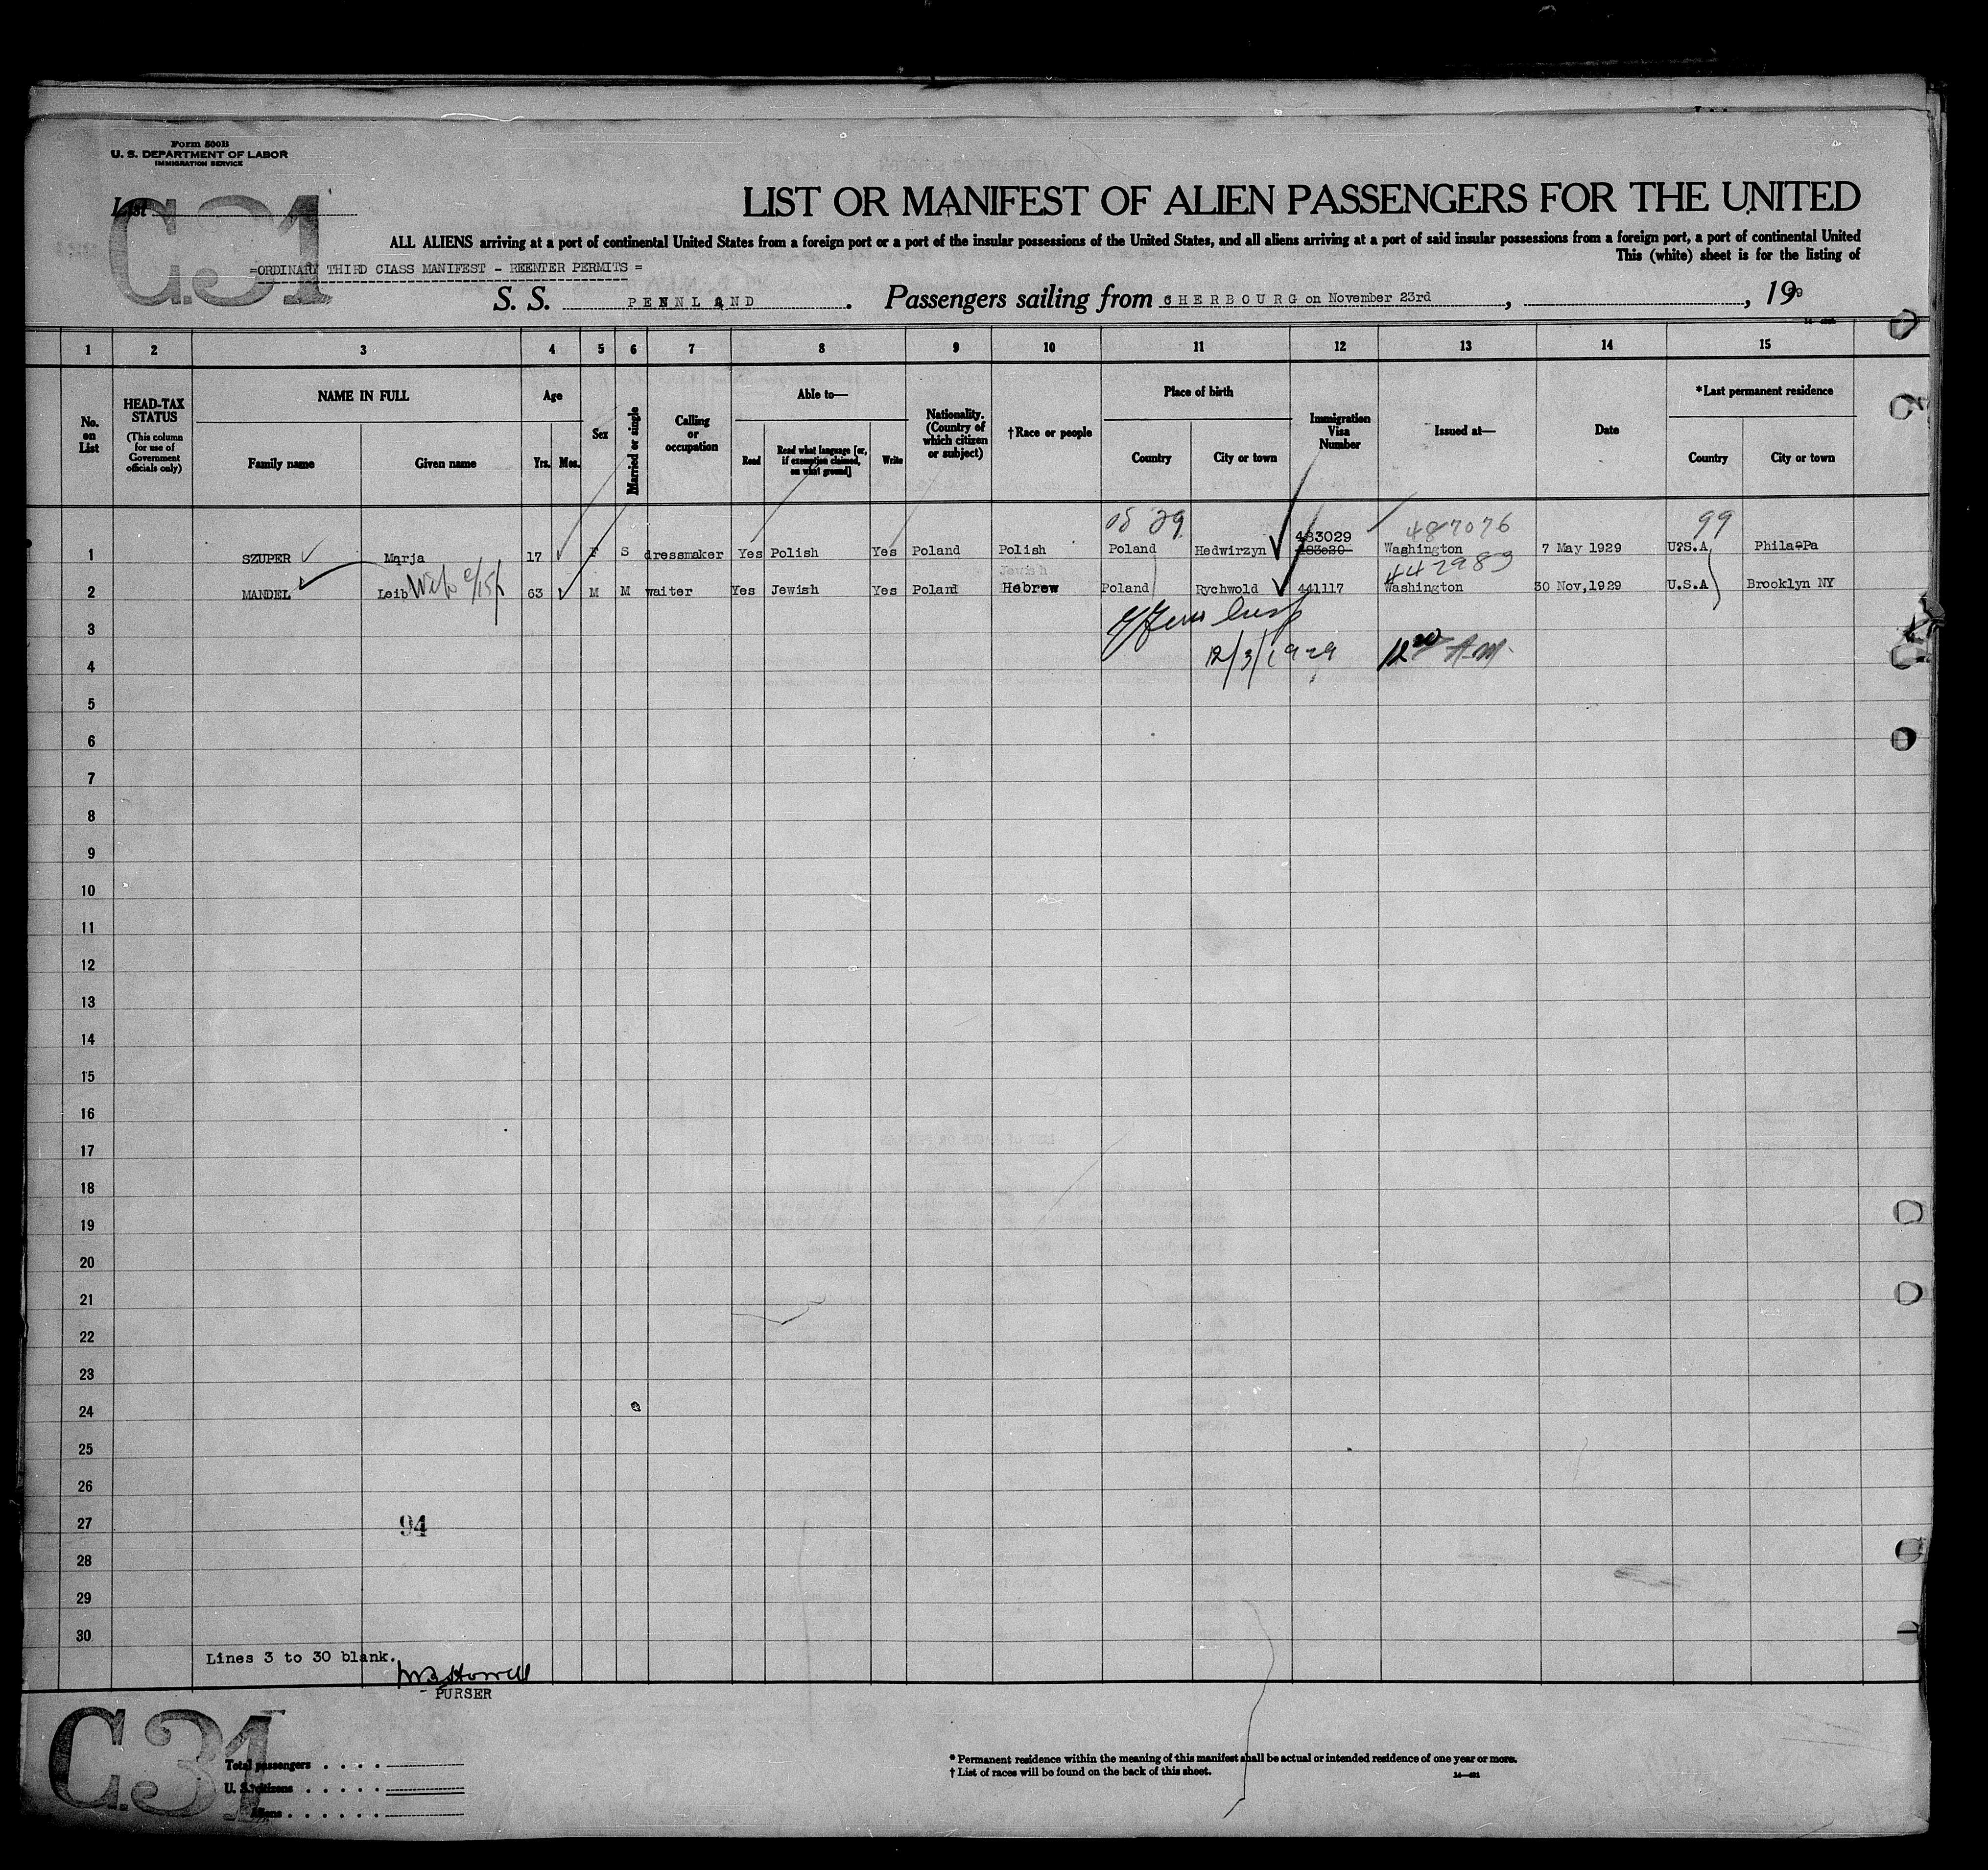 Form 500B
U. S. DEPARTMENT OF LABOR
IMMIGRATION SERVICE
List
C.31
LIST OR MANIFEST OF ALIEN PASSENGERS FOR THE UNITED
ALL ALIENS arriving at a port of continental United States from a foreign port or a port of the insular possessions of the United States, and all aliens arriving at a port of said insular possessions from a foreign port, a port of continental United
This (white) sheet is for the listing of
=ORDINARY THIRD CLASS MANIFEST - REENTER PERMITS =
S. S. PENNLAND. Passengers sailing from CHERBOURG on November 23rd, , 19
1 2 3 4 5 6 7 8 9 10 11 12 13 14 15
No. on List
HEAD-TAX STATUS
(This column for use of Government officials only)
NAME IN FULL
Family name Given name
Age
Yrs. Mos.
Sex
Married or single
Calling or occupation
Able to—
Read
Read what language [or, if exemption claimed, on what ground]
Write
Nationality. (Country of which citizen or subject)
†Race or people
Place of birth
Country City or town
Immigration Visa Number
Issued at—
Date
*Last permanent residence
Country City or town
99
483029 487076
1 SZUPER Marja 17 F S dressmaker Yes Polish Yes Poland Polish Poland Hedwirzyn Washington 7 May 1929 U.S.A Phila-Pa
Jewish 442983
2 MANDEL Leib 63 M M waiter Yes Jewish Yes Poland Hebrew Poland Rychwold 441117 Washington 30 Nov,1929 U.S.A Brooklyn NY
3
12/3/1929 12 A.M.
4
5
6
7
8
9
10
11
12
13
14
15
16
17
18
19
20
21
22
23
24
25
26
27
94
28
29
30
Lines 3 to 30 blank.
PURSER
C.31
Total passengers . . . .
U. S. citizens . . . . .
Aliens . . . . . .
* Permanent residence within the meaning of this manifest shall be actual or intended residence of one year or more.
† List of races will be found on the back of this sheet.